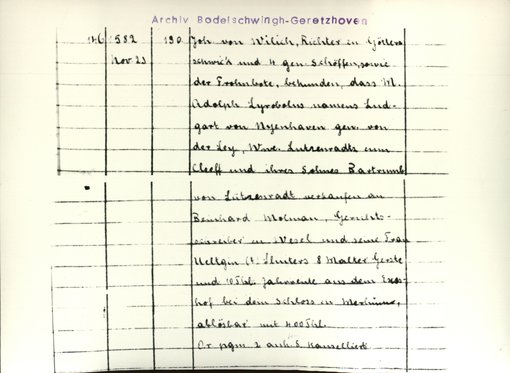 Archiv Bodelschwingh-Geretzhoven
146 1582 190. Joh von Wilich, Richter in Götters
Nov 23 schwick und 4 gen. Schöffen, sowie
der Frohnbote, bekunden, dass M.
Adolph Lyrobolus namens Lud-
gart von Nyenhaven gen. von
der Ley, Wwe. Lutzenradts zum
Cleeff und ihres Sohnes Bartrumb
von Lützenradt verkaufen an
Bernhard Molman, Gerichts-
schreiber in Wesel und seine Frau
8 Malter Gerste
und 10 Thl. Jahrrente aus dem
hof bei dem Schloss in
ablösbar mit 400 Thl.
Or. pgm. 2 anh. S. kanselliert